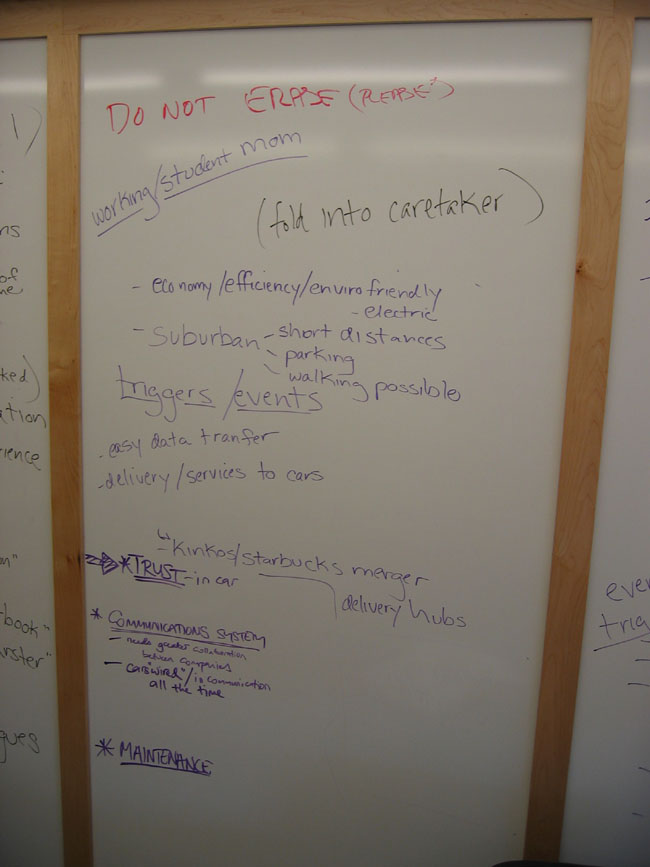 DO NOT ERASE (PLEASE")
working/student mom
(fold into caretaker)
- economy/efficiency/enviro friendly
- electric
- suburban - short distances
- parking
- walking possible
triggers/events
- easy data tranfer
- delivery/services to cars
↳ Kinkos/Starbucks merger
delivery hubs
* TRUST - in car
* COMMUNICATIONS SYSTEM
- needs greater collaboration
between companies
- cars "wired"/in communication
all the time
* MAINTENANCE
1)
ns
of
me
ked)
ation
rience
n"
-book"
arster"
gues
eve
trig